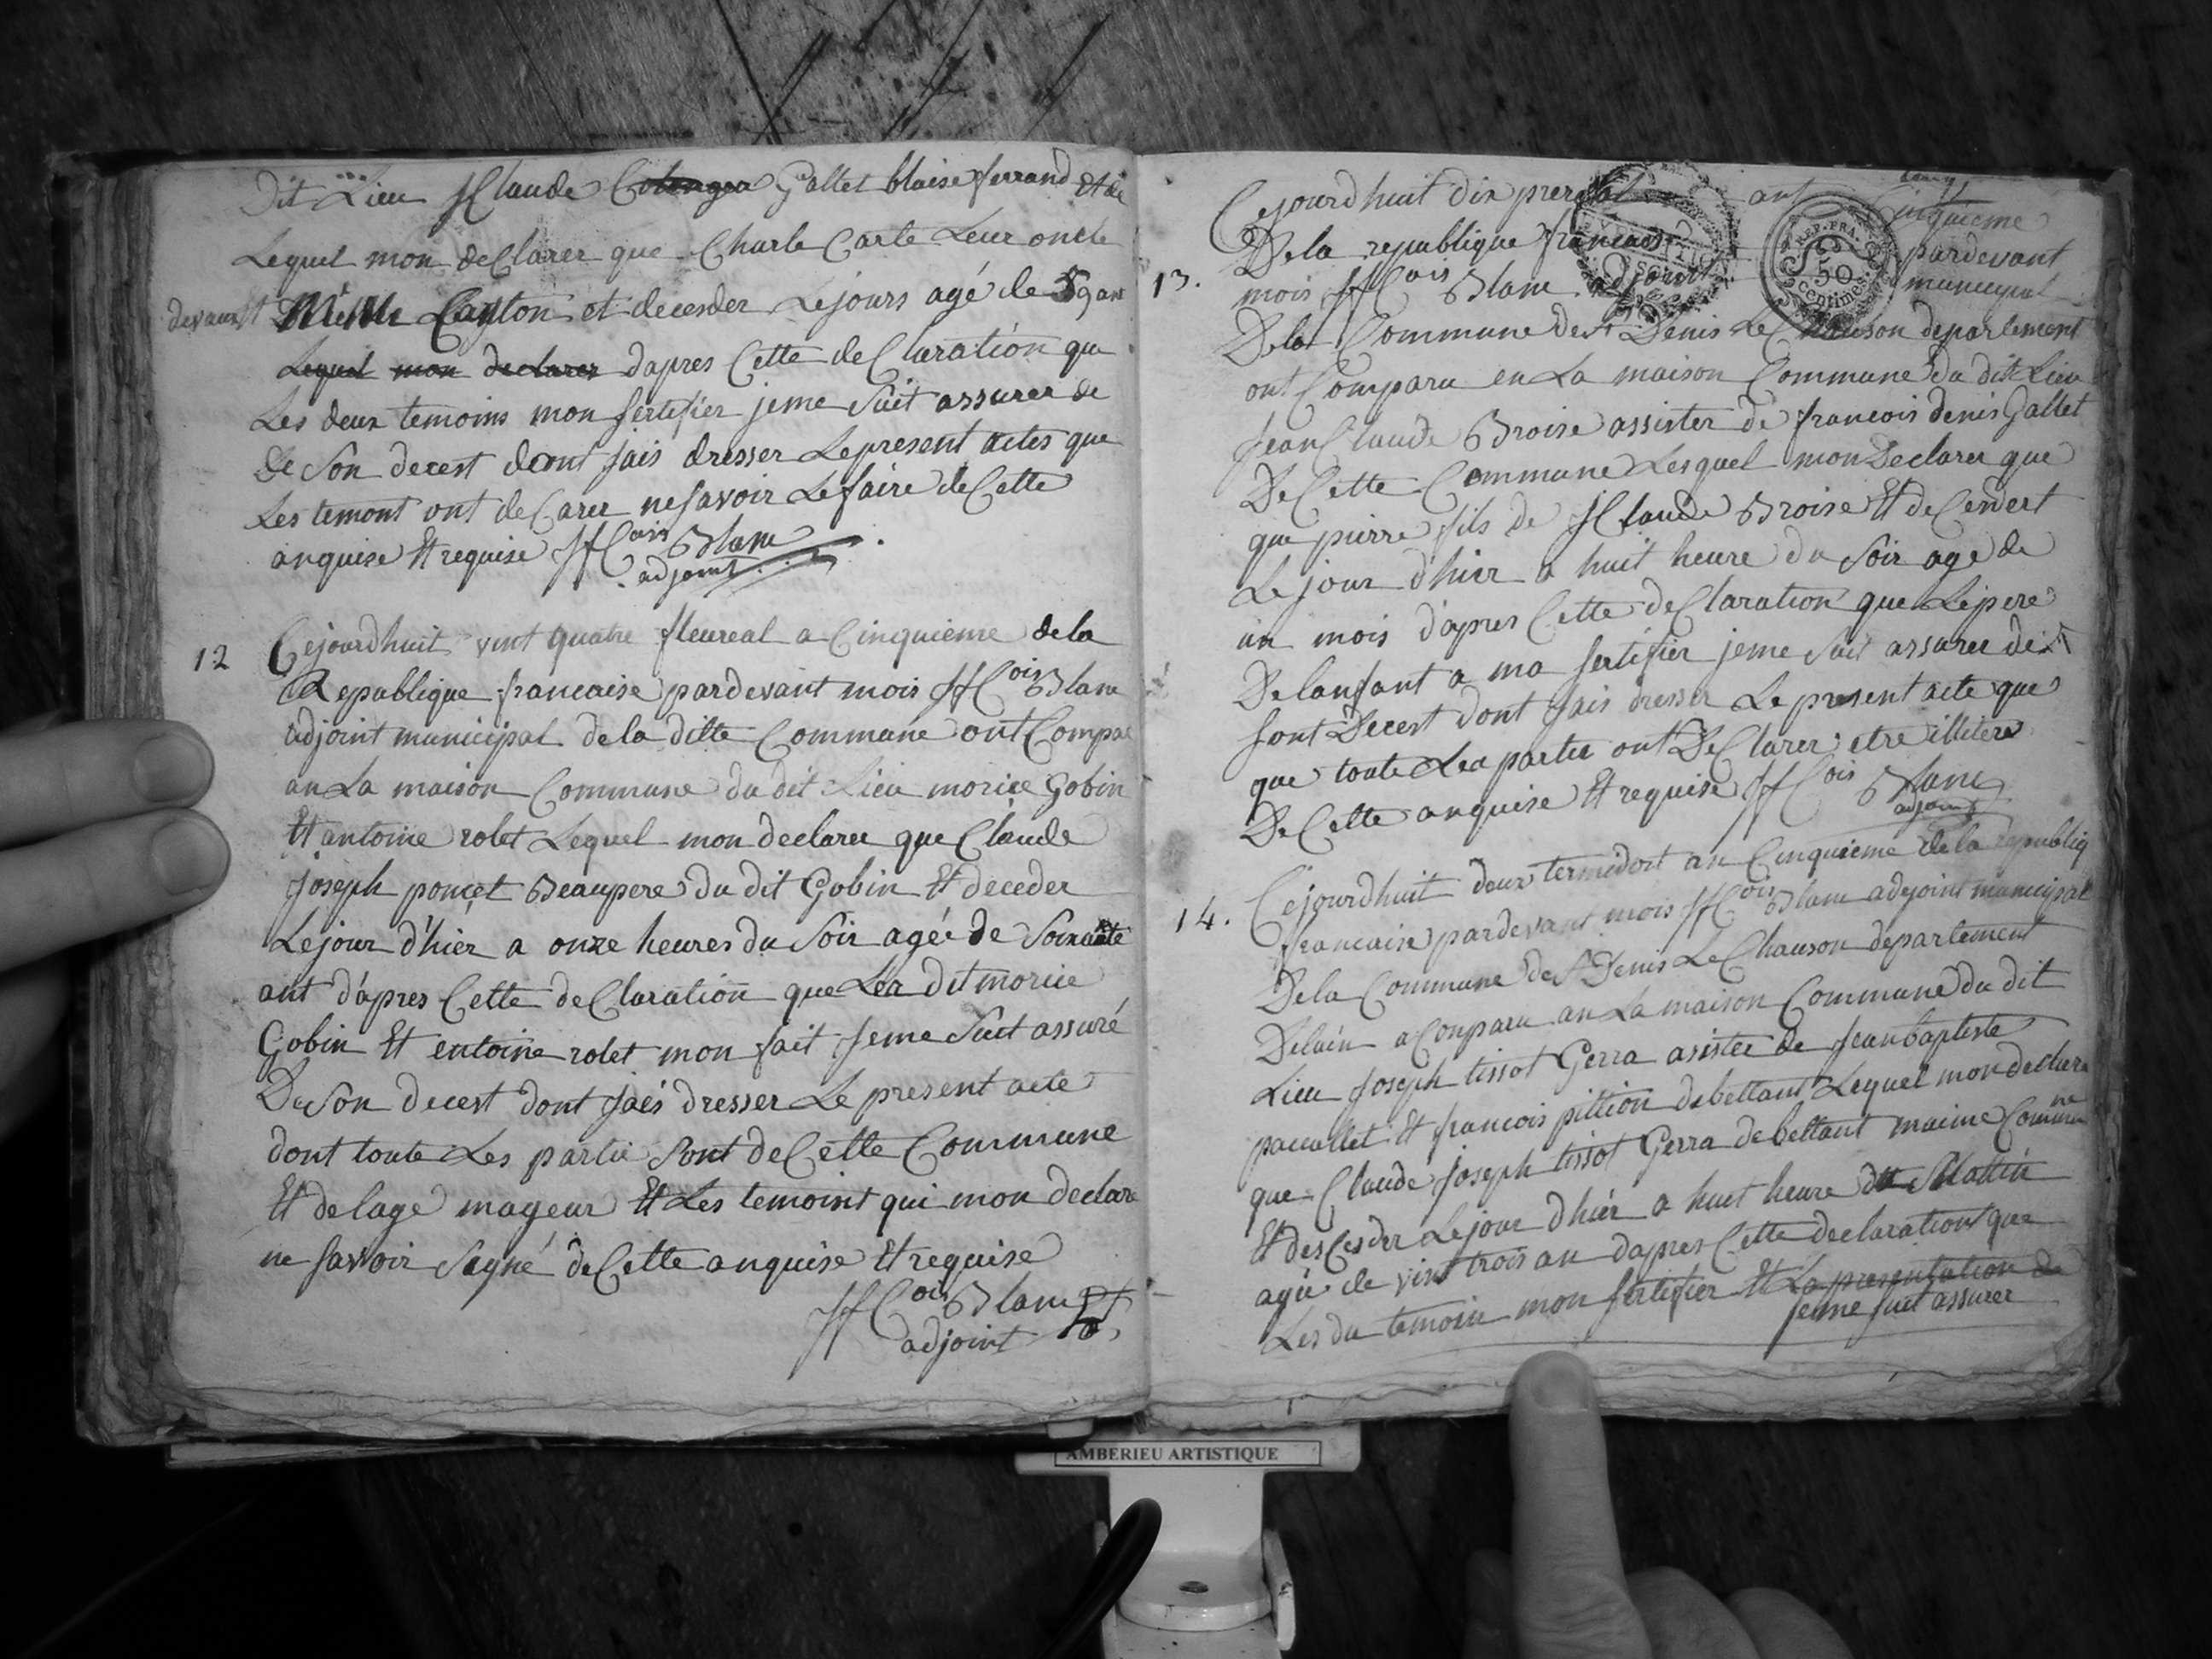 Dit Lieu JClaude Gallet blaise ferrand Et de
Lequel mon deClarer que Charle Carle Leur oncle
devant et decesder Lejours agé de 59 an
Lequel mon declarer dapres Cette deClaration que
Les deux temoins mon sertifier jeme Suit assurer de
De Son decest dont jais dresser Lepresent actes que
Les temont ont deClarer nesavoir Lefaire deCette
anquise Et requise JfCois Blanc
adjoint
12 Cejourdhuit vint quatre fleureal a Cinquieme dela
Republique francaise pardevant mois JfCois Blanc
adjoint municipal dela ditte Commune ont Compar
an La maison Commune du dit Lieu morice Gobin
Et antoine rolet Lequel mon declarer que Claude
Joseph ponçet Beaupere du dit Gobin Et deceder
Lejour d'hier a onze heures du Soir agée de Soixante
ant d'apres Cette deClaration que Lea dit morice
Gobin Et entoine rolet mon fait Jeme Suit assuré
De Son decest dont Jaés dresser Le present acte
dont toute Les partie Sont deCette Commune
Et delage mageur Et Les temoint qui mon declare
ne savoir Sagné deCette anquise Et requise
JfCois Blanc
adjoint
Cejourdhuit dix prerial ant Cinquieme
De la republique francais pardevant
13. mois JfCois Blanc adjoint municipal
Dela Commune de St Denis Le Chauson departement
ont Comparu en La maison Commune du dit Lieu
Jean Claude Broise assister de francois denis Gallet
DeCette Commune Lesquel mon Declarer que
que pierre fils de JClaude Broise Et deCendert
Le jour d'hier a huit heure du Soir age de
un mois d'apres Cette deClaration que Lepere
Delanfant a ma sertifier jeme Suit assurer de
sont Decest dont Jais dresser Le present acte que
que toute Lea partie ont DeClarer etre illitere
DeCette anquise Et requise JfCois Blanc
adjoint
14. Cejourdhuit deux termidort an Cinquieme dela republiq
francaise pardevant mois JfCois Blanc adejoint municipal
Dela Commune de St Denis Le Chauson departement
Delain aConparu an La maison Commune du dit
Lieu Joseph tissot Gerra asistée de Jean baptiste
paccallet Et francois pittion debettant Lequel mon declare
que Claude Joseph tissot Gerra debettant maime Commune
Et desCesder Lejour d'hiér a huit heure du Mattin
agée de vint trois an dapres Cette declaration que
Les du temoin mon sertifier Et La presentation de
jeme suit assurer
REP. FRA.
50
centimes
AMBERIEU ARTISTIQUE